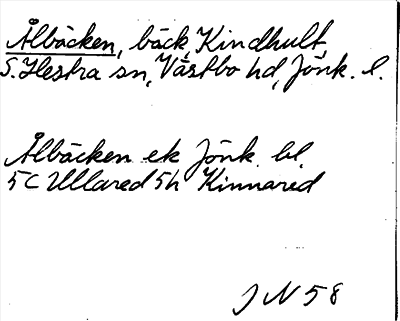 Ålbäcken, bäck, Kindhult,
S. Hestra sn, Västbo hd, Jönk. l.
Ålbäcken ek Jönk. bl.
5C Ullared 5h Kinnared
JN58